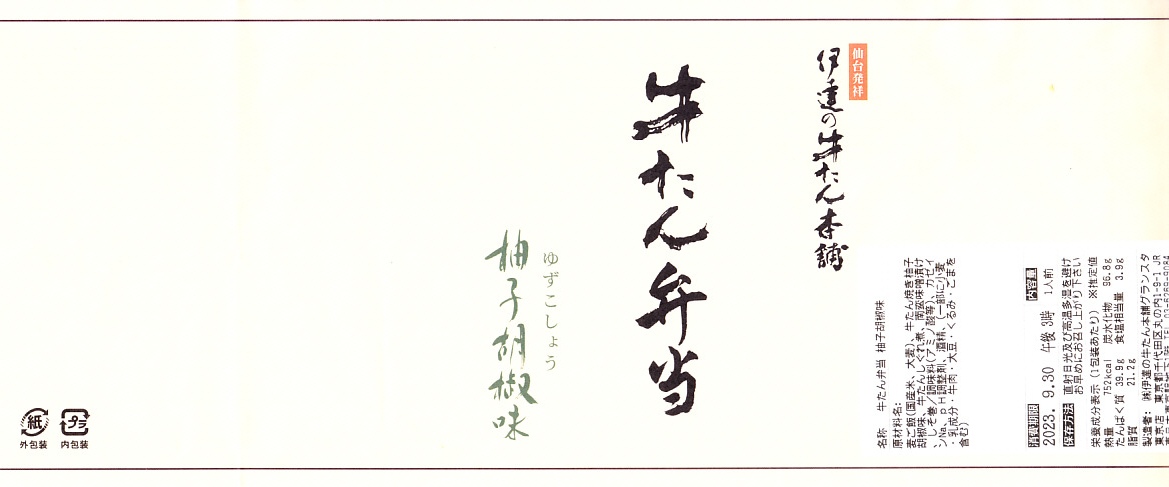 仙台発祥
伊達の牛たん本舗
牛たん弁当
ゆずこしょう
柚子胡椒味
紙
外包装
プラ
内包装
名称 牛たん弁当 柚子胡椒味
原材料名:
麦ご飯(国産米、大麦)、牛たん焼き柚子
胡椒味、牛たんしぐれ煮、南蛮味噌漬け
、しそ巻／調味料(アミノ酸等)、カゼイ
ンNa、ｐＨ調整剤、酒精、(一部に小麦
・乳成分・牛肉・大豆・くるみ・ごまを
含む)
消費期限
2023. 9.30 午後 3時
内容量
1人前
保存方法
直射日光及び高温多湿を避け
お早めにお召し上がり下さい
栄養成分表示 (1包装あたり) ※推定値
熱量 752kcal 炭水化物 96.8g
たんぱく質 39.9g 食塩相当量 3.9g
脂質 21.2g
製造者: ㈱伊達の牛たん本舗グランスタ
東京店 東京都千代田区丸の内1-9-1 JR